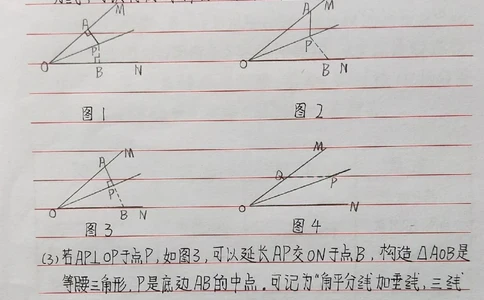 M
A
P
O
B
N
图1
M
A
P
O
B
N
图2
M
A
P
O
B
N
图3
M
Q
P
O
N
图4
(3)若AP⊥OP于点P,如图3,可以延长AP交ON于点B,构造△AOB是
等腰三角形,P是底边AB的中点.可记为“角平分线加垂线,三线